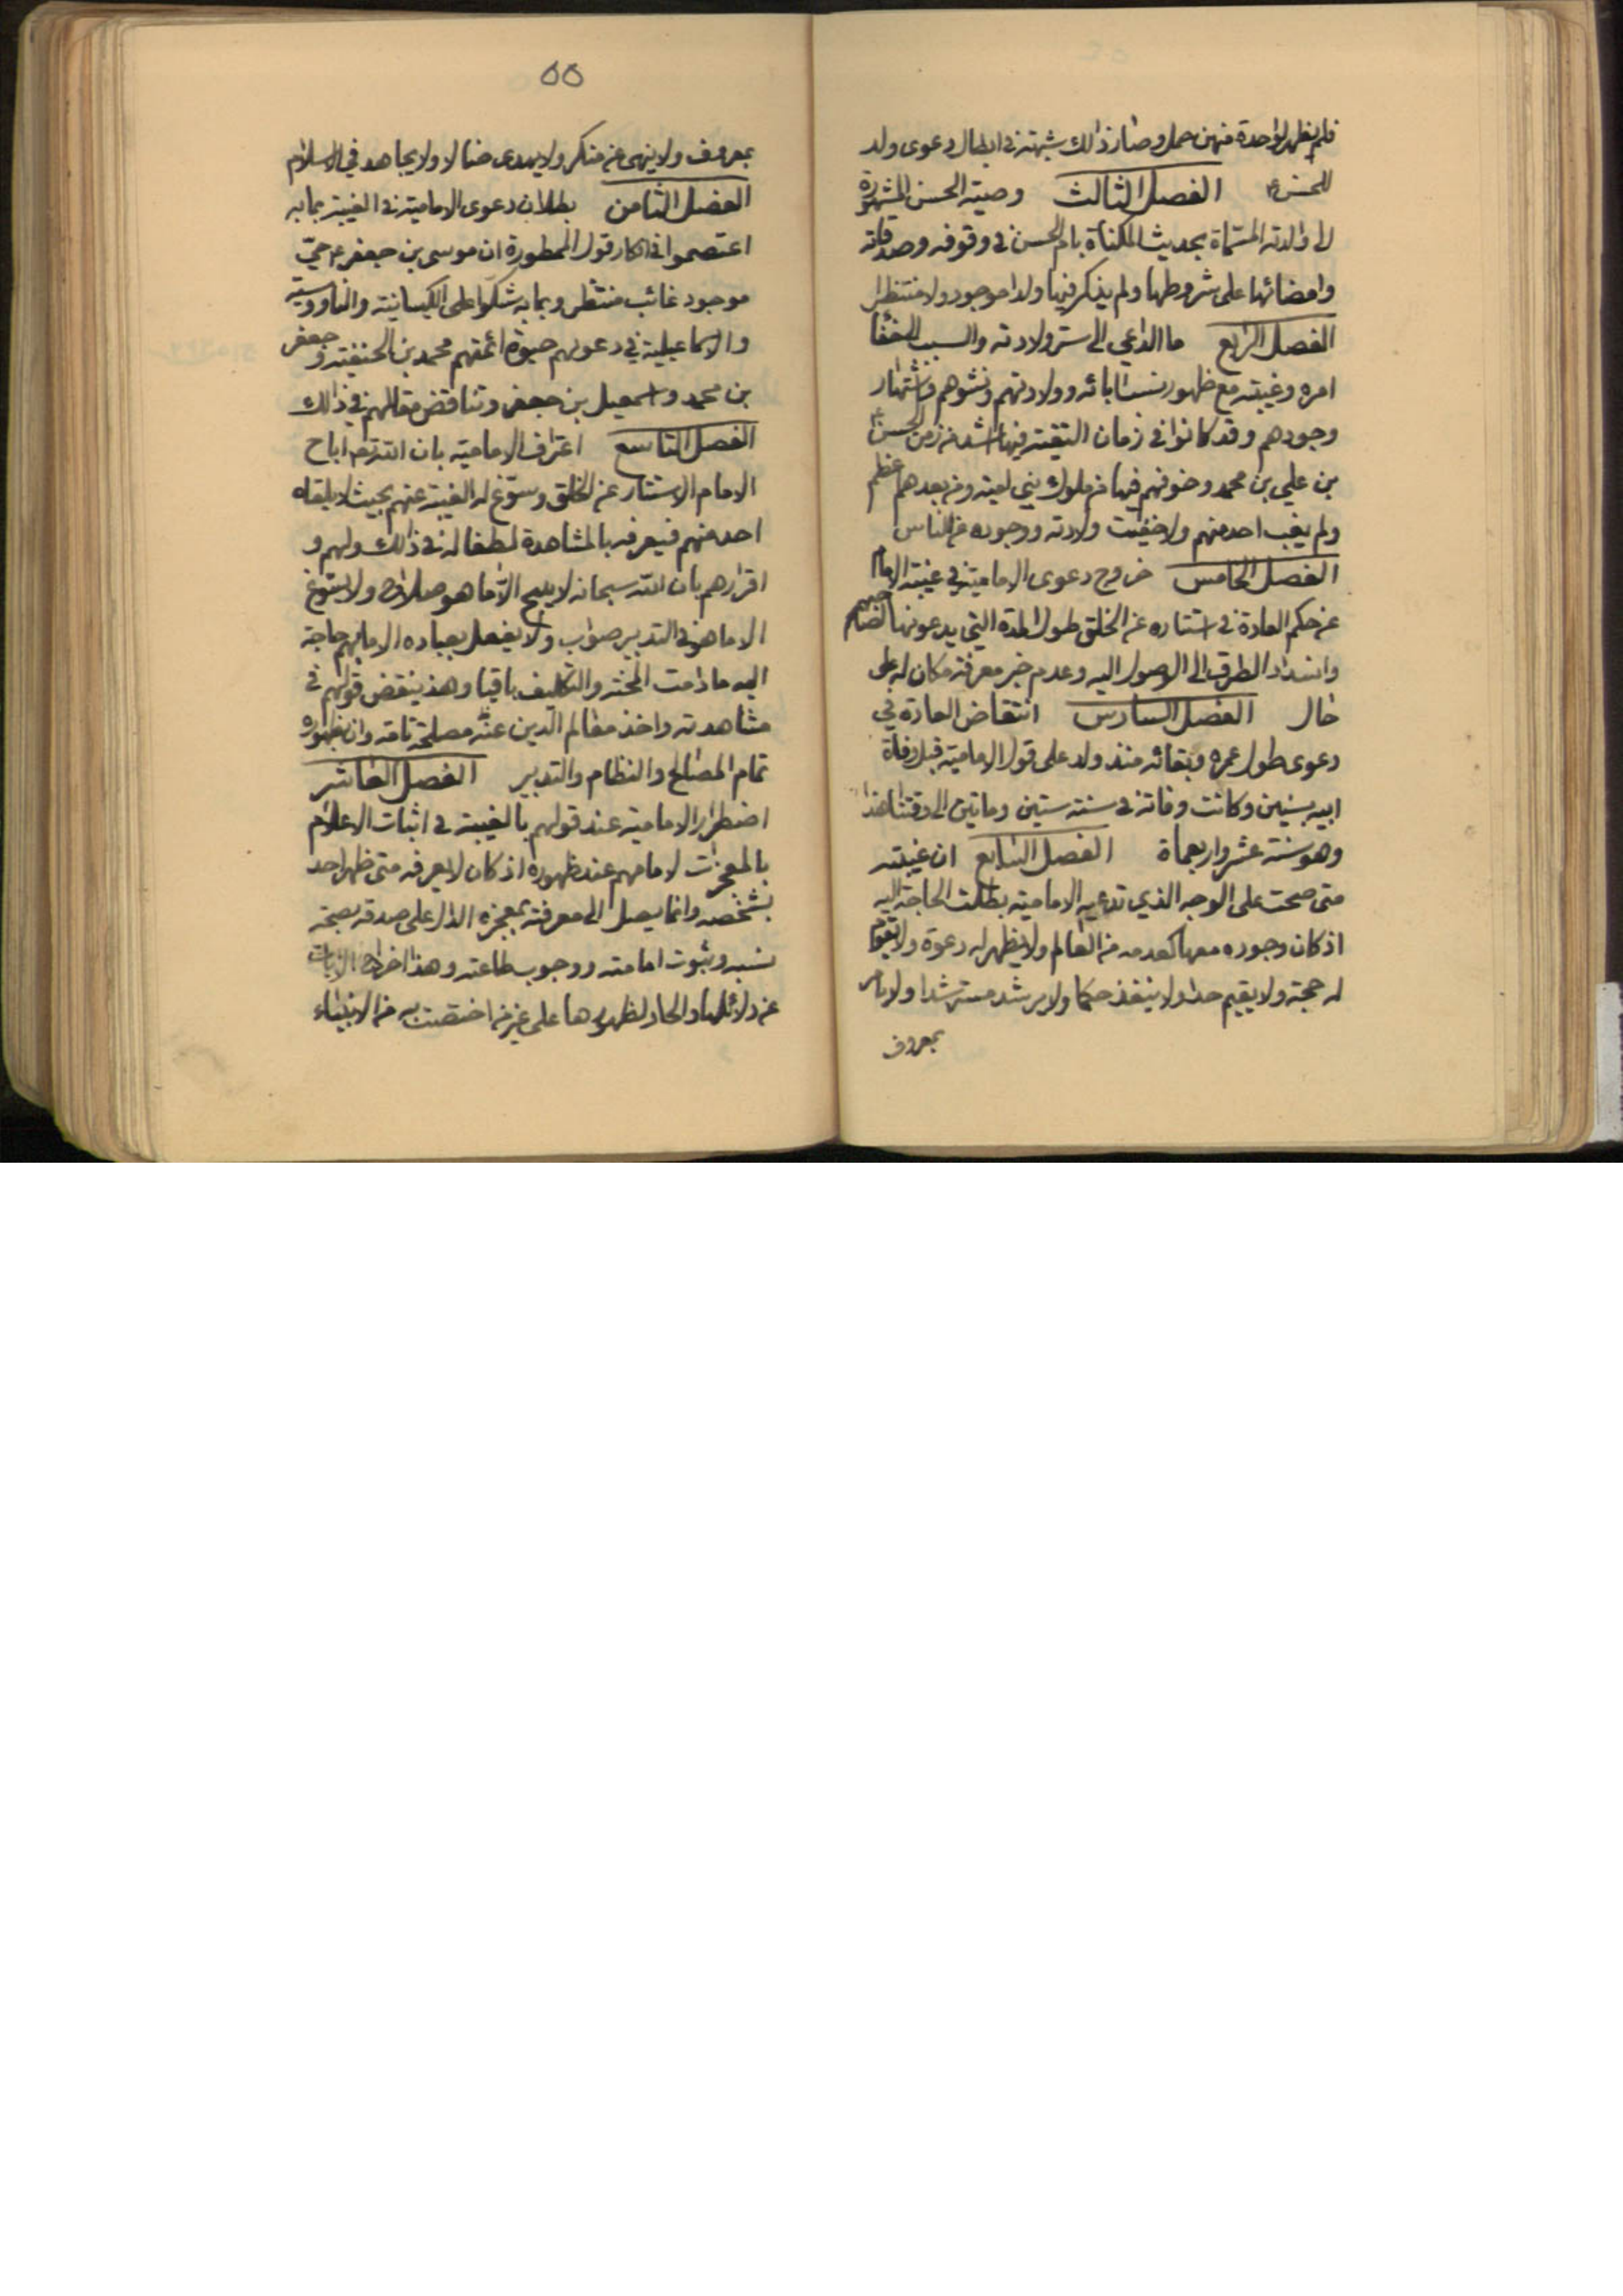 فلم يظهر لواحدة منهن حمل وصار ذلك شبهة في ابطال دعوى ولد
للحسن ع الفصل الثالث وصية الحسن المشهورة
الى والدته المسماة بحديث المكناة بام الحسن في وقوفه وصدقاته
وامضائها على شروطها ولم يذكر فيها ولدا موجودا ولا منتظرا
الفصل الرابع ما الداعي الى ستر ولادته والسبب الى خفا
امره وغيبته مع ظهور نسب ابائه وولادتهم ونشوهم واشتهار
وجودهم وقد كانوا في زمان التقية فيها اشد من زمن الحسن ع
بن علي بن محمد وخوفهم فيها من ملوك بني امية ومن بعدهم اعظم
ولم يغب احد منهم ولا خفيت ولادته ووجوده عن الناس
الفصل الخامس خروج دعوى الامامية في غيبة الامام
عن حكم العادة في استتاره عن الخلق طول المدة التي يدعونها لصاحبهم
وانسداد الطرق الى الوصول اليه وعدم خبر معرفة مكان له على
حال الفصل السادس انتقاض العادة في
دعوى طول عمره وبقائه منذ ولد على قول الامامية قبل وفاة
ابيه بسنين وكانت وفاته في سنة ستين وماتين الى وقتنا هذا
وهو سنة عشر واربعماة الفصل السابع ان غيبته
متى صحت على الوجه الذي تدعيه الامامية بطلت الحاجة اليه
اذ كان وجوده معها كعدمه من العالم ولا يظهر له دعوة ولا تقوم
له حجة ولا يقيم حدا ولا ينفذ حكما ولا يرشد مسترشدا ولا يامر
بمعروف
٥٥
بمعروف ولا ينهى عن منكر ولا يهدى ضالا ولا يجاهد في الاسلام
الفصل الثامن بطلان دعوى الامامية في الغيبة بما به
اعتصموا في انكار قول الممطورة ان موسى بن جعفر ع حيّ
موجود غائب منتظر وبما به شكوا على الكيسانية والناووسية
والاسماعيلية في دعويهم حيوة ائمتهم محمد بن الحنفية وجعفر
بن محمد واسمعيل بن جعفر وتناقض مقالهم في ذلك
الفصل التاسع اعتراف الامامية بان الله تعم اباح
الامام الاستتار عن الخلق وسوّغ له الغيبة عنهم بحيث لا يلقاه
احد منهم فيعرفه بالمشاهدة لطفا له في ذلك ولهم و
اقرارهم بان الله سبحانه لا يبيح الّا ما هو صلاح ولا يسوغ
الا ما هو في التدبير صواب ولا يفعل بعباده الا ما بهم حاجة
اليه ما دامت المحنة والتكليف باقيا وهذ ينقض قولهم في
مشاهدته واخذ معالم الدين عنه مصلحة تامة وان بظهوره
تمام المصالح والنظام والتدبير الفصل العاشر
اضطرار الامامية عند قولهم بالغيبة في اثبات الاعلام
بالمعجزات لامامهم عند ظهوره اذ كان لا يعرف متى ظهر احد
بشخصه وانما يصل الى معرفته بمعجزه الدال على صدقه بصحة
نسبه وثبوت امامته ووجوب طاعته وهذا اخراج الايات
عن دلائلها والحاد لظهورها على غير من اختصت به من الانبياء